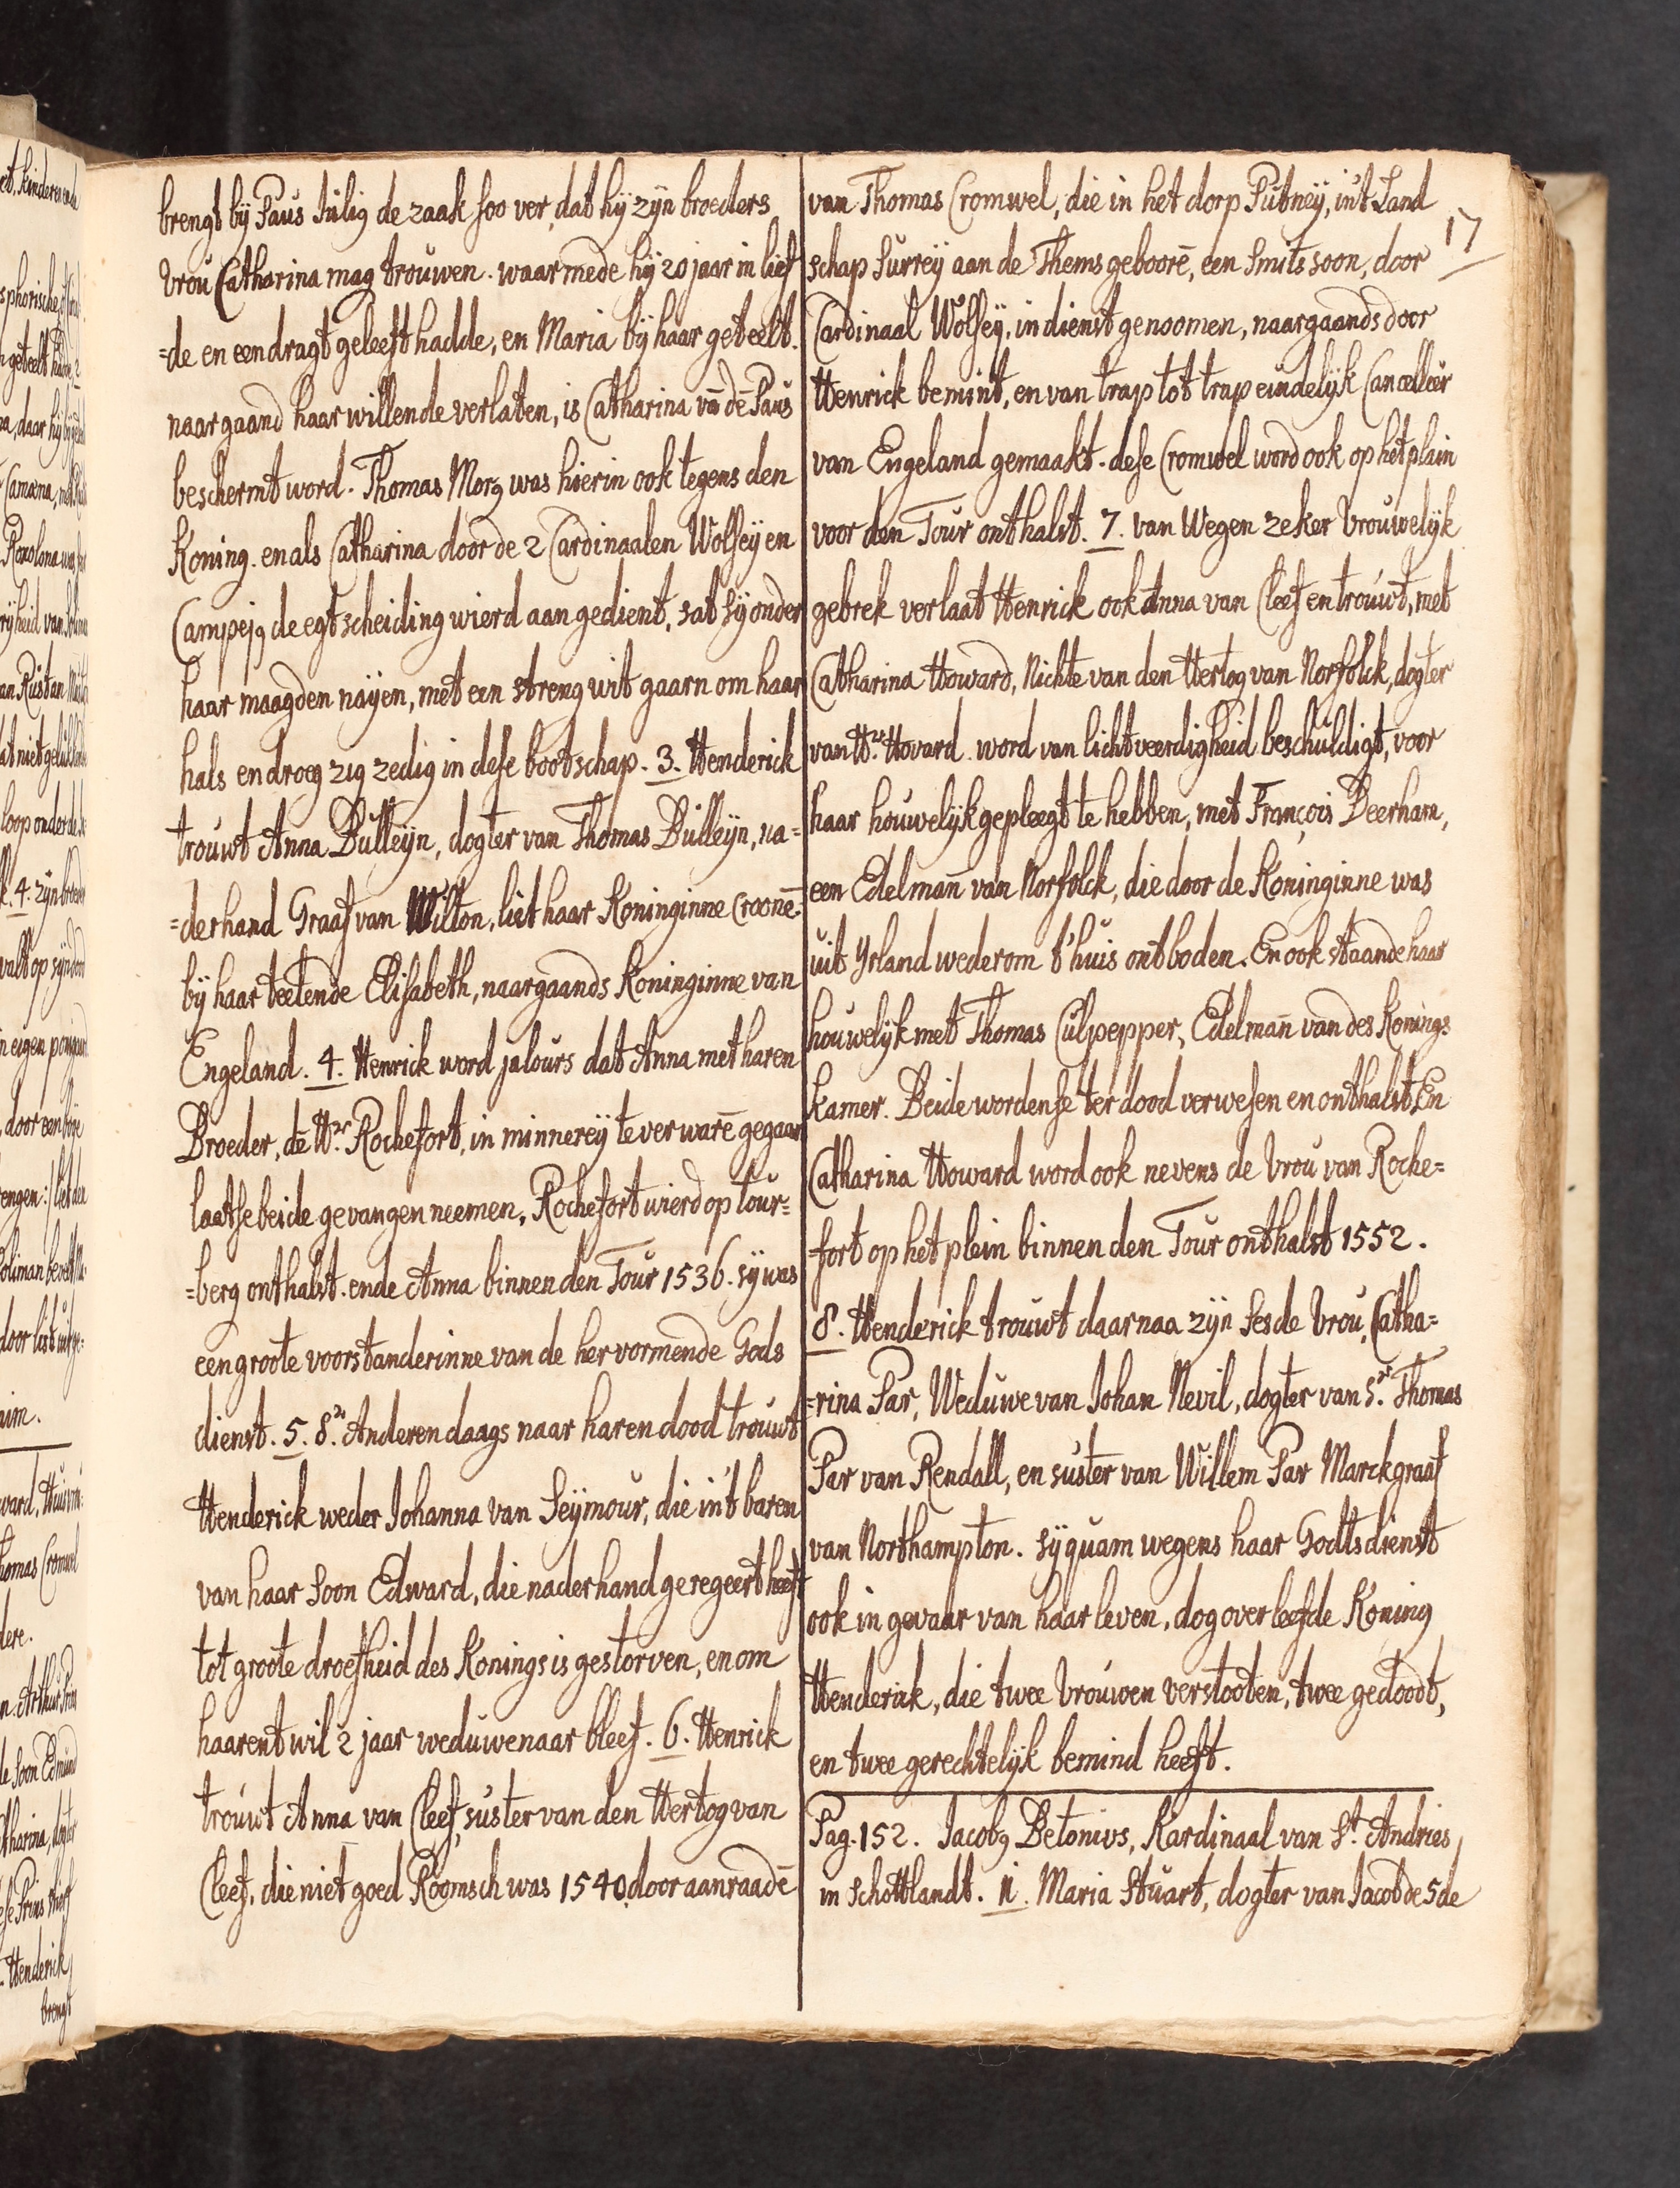 brengt bij Paus Julig de zaak soo ver, dat hij zijn broeders
vrou Catharina mag trouwen. waar mede hij 20 jaar in lief
=de en eendragt geleeft hadde, en Maria bij haar geteelt.
naargaand haar willende verlaten, is Catharina vā dē Paus
beschermt word. Thomas Morg was hierin ook tegens den
Koning. en als Catharina door de 2 Cardinaalen Wolseij en
Campejg de egtscheiding wierd aangedient, sat sij onder
haar maagden naijen, met een streng wit gaarn om haar
hals en droeg zig zedig in dese bootschap. 3. Henderick
trouwt Anna Bulleijn, dogter van Thomas Bulleijn, na=
=derhand Graaf van Wilton, liet haar Koninginne Croonē.
bij haar teelende Elisabeth, naargaands Koninginne van
Engeland. 4. Henrick word jalours dat Anna met haren
Broeder, dē Hr. Rochefort, in minnereij te verwarē gegaan
laatse beide gevangen neemen, Rochefort wierd op tour=
=berg onthalst. ende Anna binnen den Tour 1536. sij was
een groote voorstanderinne van de hervormende Gods
dienst. 5. 8. Anderen daags naar haren dood trouwt
Henderick weder Johanna van Seijmour, die in't baren
van haar soon Edward, die naderhand geregeert heeft
tot groote droefheid des Konings is gestorven, en om
haarent wil 2 jaar weduwenaar bleef. 6. Henrick
trouwt Anna van Cleef, suster van den Hertog van
Cleef, die niet goed Roomsch was 1540. door aanraadē
17
van Thomas Cromwel, die in het dorp Putneij, in't Land
schap Surreij aan de Thems geboorē, een Smits soon, door
Cardinaal Wolseij, in dienst genoomen, naargaands door
Henrick bemint, en van trap tot trap eindelijk Cancelleer
van Engeland gemaakt. dese Cromwel word ook op het plain
voor den Tour onthalst. 7. van Wegen zeker Vrouwelijk
gebrek verlaat Henrick ook Anna van Cleef en trouwt, met
Catharina Howard, Nichte van den Hertog van Norfolck, dogter
van Hr. Hovard. word van lichtveerdigheid beschuldigt, voor
haar houwelijk gepleegt te hebben, met François Deerham,
een Edelman̄ van Norfolck, die door de Koninginne was
uit Yrland wederom t'huis ontboden. En ook staande haar
houwelijk met Thomas Culpepper, Edelman̄ van des Konings
Kamer. Beide wordense ter dood verwesen en onthalst. En
Catharina Howard word ook nevens de vrou van Roche=
fort op het plein binnen den Tour onthalst 1552.
8. Henderick trouwt daarnaa zijn Sesde Vrou, Catha=
=rina Par, Weduwe van Johan Nevil, dogter van Sr. Thomas
Par van Rendall, en suster van Willem Par Marckgraaf
van Northampton. sij quam wegens haar Godtsdienst
ook in gevaar van haar leven, dog overleefde Koning
Henderick, die twee Vrouwen verstooten, twee gedoodt,
en twee gerechtelijk bemind heeft.
Pag. 152. Jacobg Betonivs, Kardinaal van St. Andries
in Schottlandt. N. Maria Stuart, dogter van Jacob de 5de